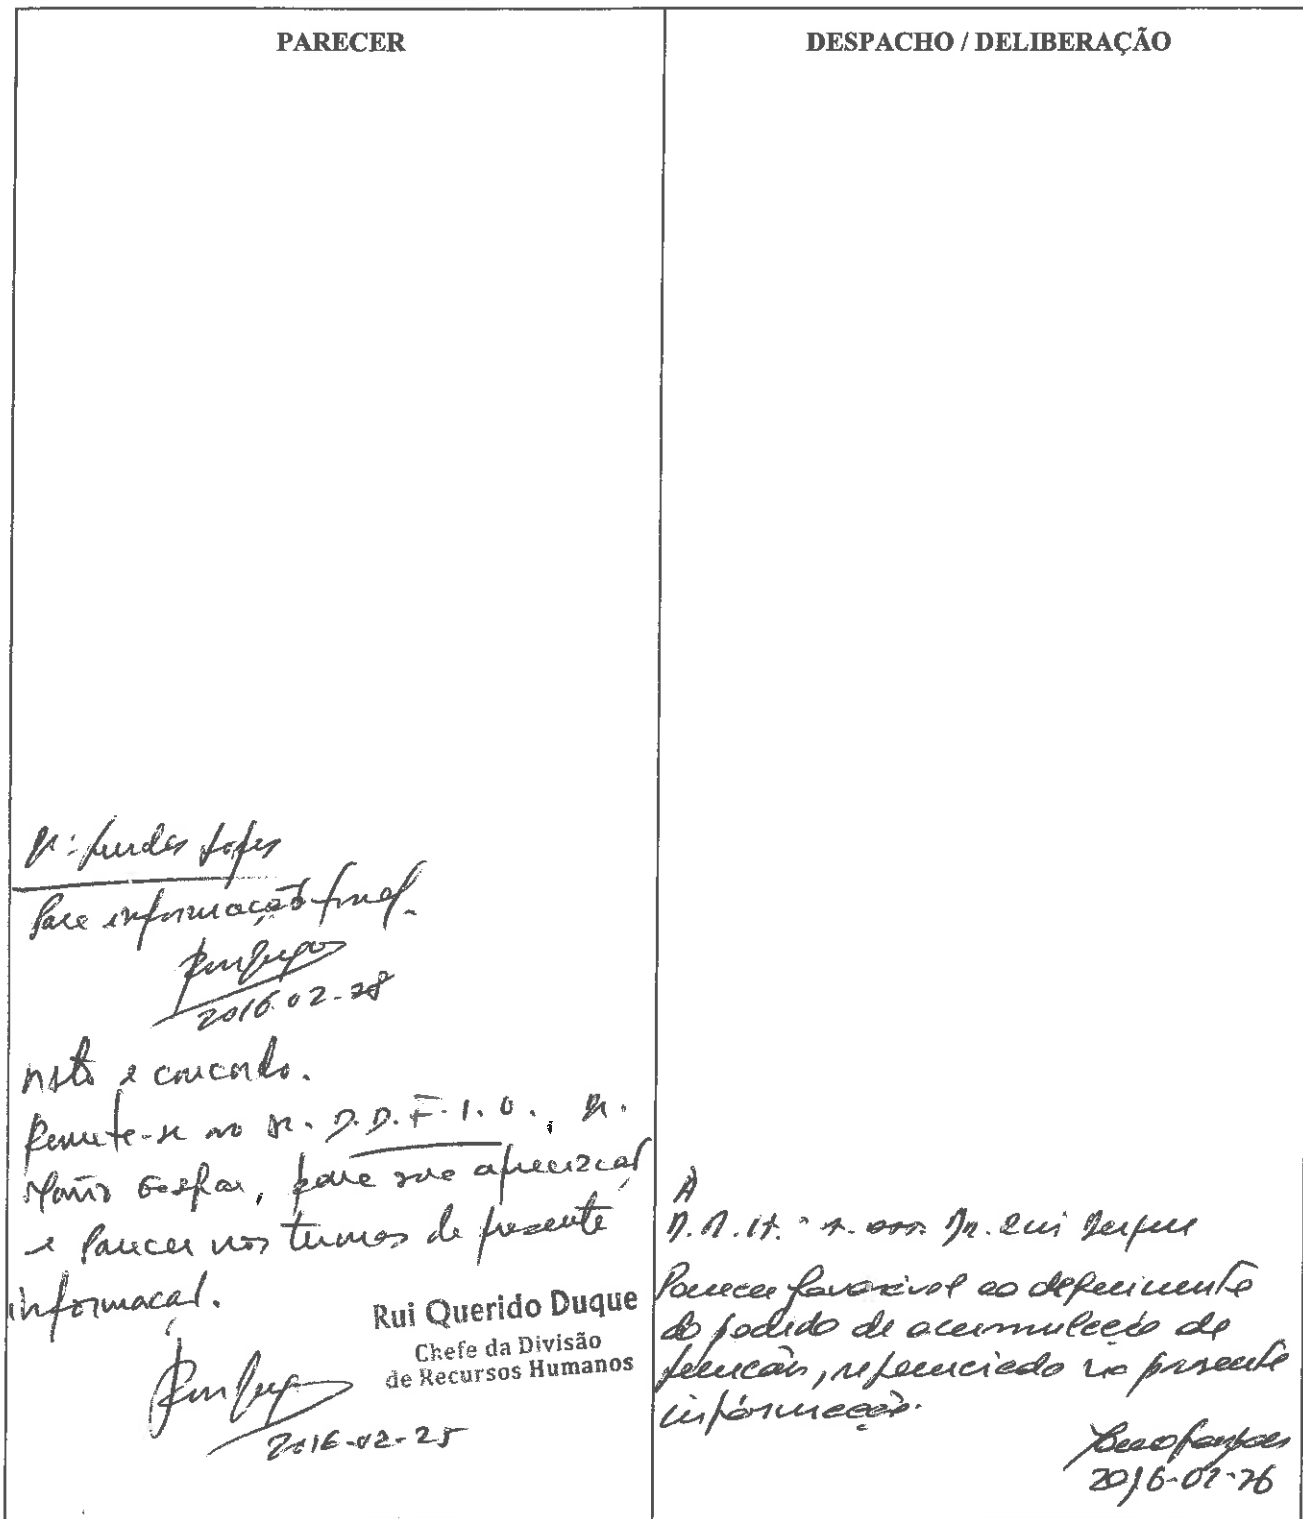 PARECER
Lurdes Lopes
Para informação final.
2016-02-28
Visto e concordo.
Remete-se ao Sr. D.D.F.I.O., Dr.
Gaspar, para sua apreciação
e Parecer nos termos da presente
informação.
Rui Querido Duque
Chefe da Divisão
de Recursos Humanos
2016-02-25
DESPACHO / DELIBERAÇÃO
À
D.R.H. Dr. Rui Duque
Parecer favorável ao deferimento
do pedido de acumulação de
funções, referenciado na presente
informação.
2016-02-26